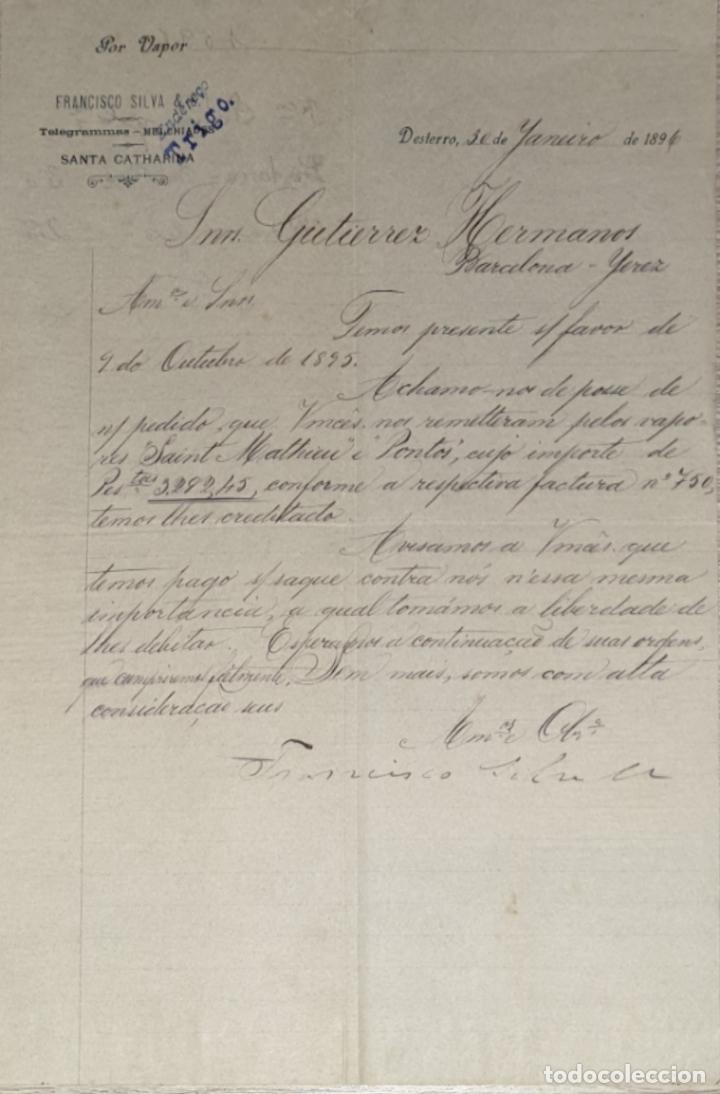 Por Vapor
FRANCISCO SILVA &
Telegrammas – MELCHIADES
SANTA CATHARINA
Endereço
Trigo.
Desterro, 30 de Janeiro de 1896
Snrs. Gutierrez Hermanos
Barcelona – Yerez
Am.os e Snrs.
Temos presente s/ favor de
9 do Outubro de 1895.
Achamo-nos de posse de
n/ pedido, que Vmcês. nos remetteram pelos vapo-
res "Saint Mathieu" e "Pontos", cujo importe de
Pes.tas 3.282,45, conforme a respectiva factura nº 750,
temos lhes creditado.
Avisamos a Vmcês. que
temos pago s/ saque contra nós n'essa mesma
importancia, a qual tomámos a liberdade de
lhes debitar. Esperamos a continuação de suas ordens,
que cumpriremos fielmente. Sem mais, somos com alta
consideração seus
Am.os e
Francisco Silva &
todocoleccion